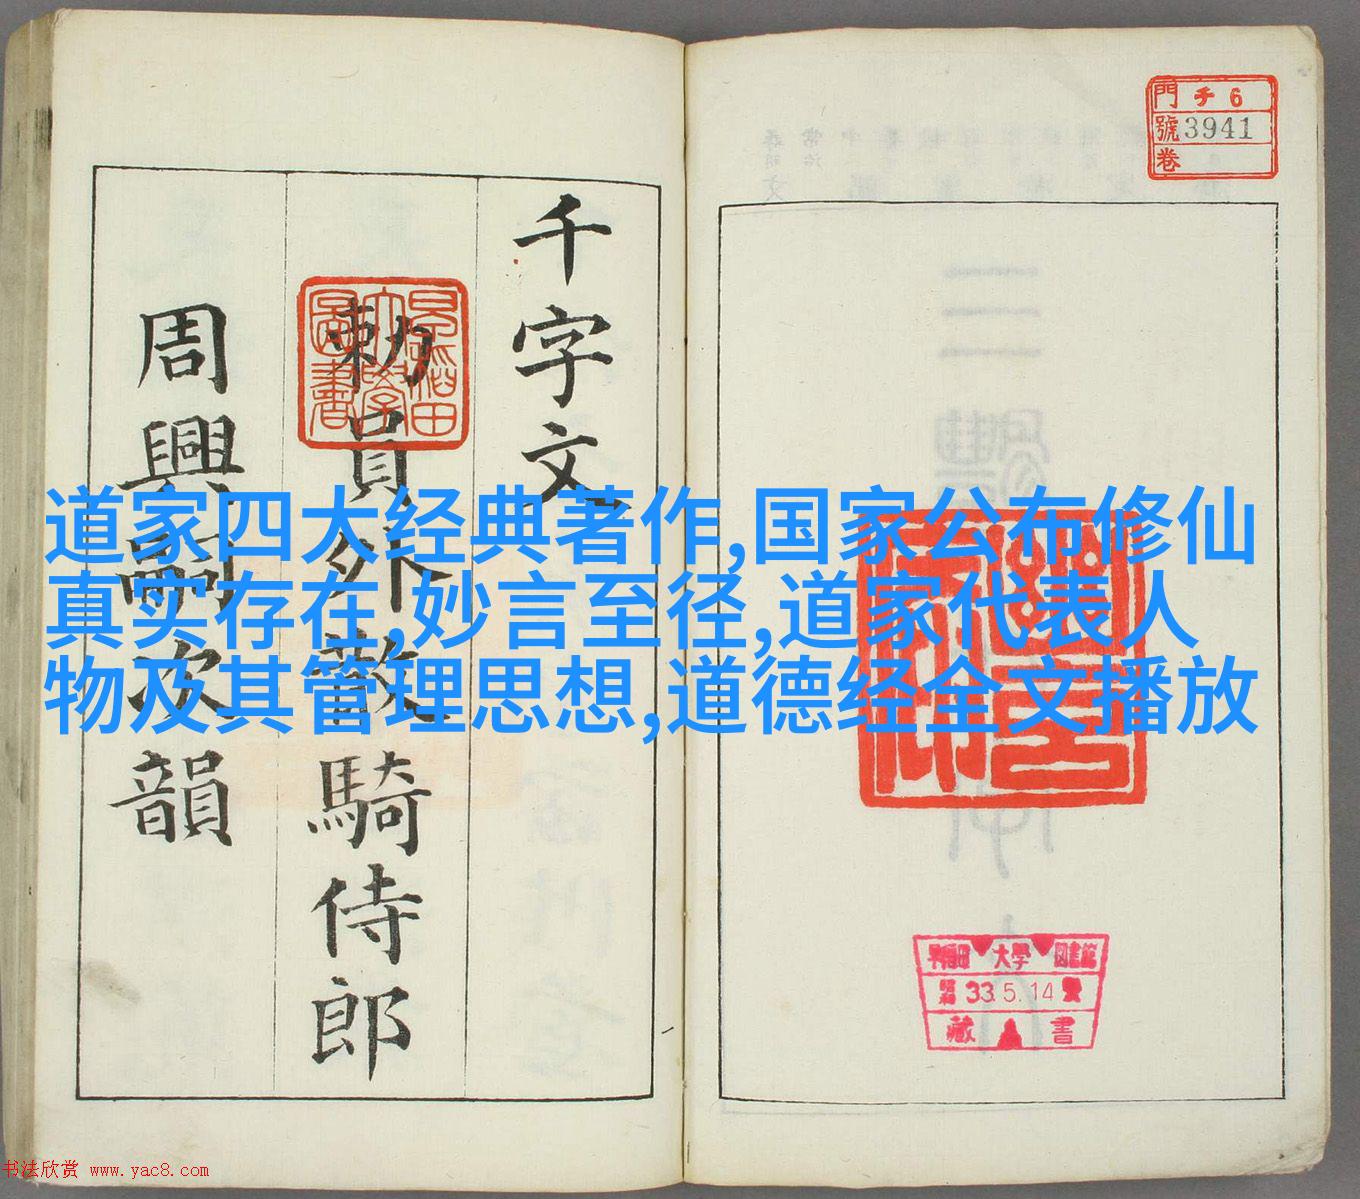 道家四大经典著作,国家公布修仙
真实存在,妙言至径,道家代表人
物及其管理思想,道德经全文播放
千字文
勅員外散騎侍郎
周興嗣次韻
早稲田大學圖書
門 チ6
號 3941
卷
早稲田大學圖書館
昭和 33.5.14
藏書
书法欣赏 www.yac8.com